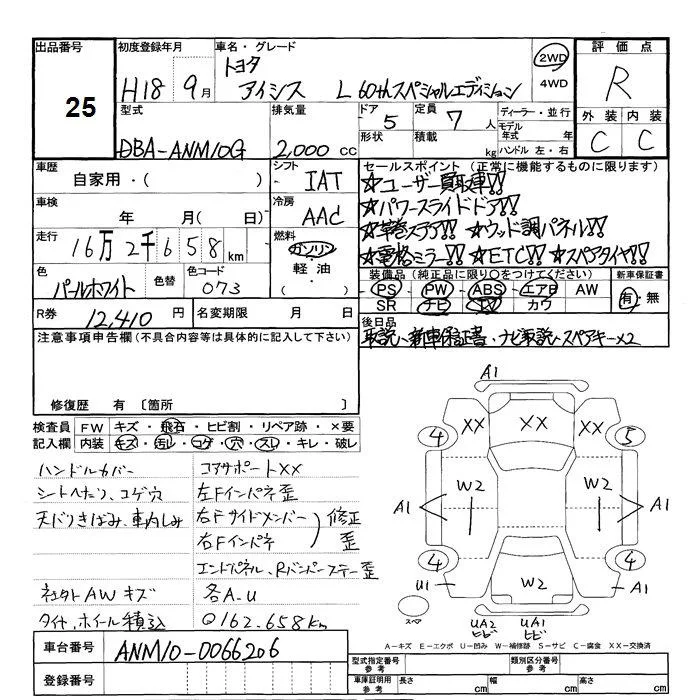 出品番号 初度登録年月 車名・グレード 評価点
25 H18 9月 トヨタ アイシス L 60thスペシャルエディション 2WD 4WD R
型式 排気量 ドア 定員 ディーラー・並行 外装 内装
DBA-ANM10G 2,000 cc 5 7 人 モデル年式 年 C C
形状 積載 kg ハンドル 左・右
車歴 シフト セールスポイント (正常に機能するものに限ります)
自家用・( ) IAT ☆ユーザー買取車!!
車検 冷房 ☆パワースライドドア!!
年 月(日) AAC ☆革巻ステア!! ☆ウッド調パネル!!
走行 16万2千658km 燃料 ガソリン・軽油・( ) ☆電格ミラー!! ☆ETC!! ☆スペアタイヤ!!
色 色替 色コード 装備品 (純正品に限り○をつけてください) 新車保証書
パールホワイト 073 PS・PW・ABS・エアB AW 有・無
SR ナビ TV カワ
R券 12,410 円 名変期限 月 日 後日品
取説、新車保証書・ナビ取説・スペアキー×2
注意事項申告欄 (不具合内容等は具体的に記入して下さい)
修復歴 有 〔箇所 〕
検査員記入欄 FW キズ・飛石・ヒビ割・リペア跡・×要
内装 キズ・汚レ・コゲ・穴・スレ・キレ・破レ
ハンドルカバー コアサポートXX
シートへたり、コゲ穴 左Fインパネ歪
天バリきばみ、車内しみ 右Fサイドメンバー 修正
右Fインパネ 歪
エンドパネル、Rバンパーステー歪
社外AWキズ 各A.U
タイヤ、ホイール積込 ◎162.658km
A1
XX XX XX
4 5
A1 W2 W2 A1
4 4
U1 W2 A1
スペア UA2 ヒビ UA1 ヒビ
A-キズ E-エクボ U-凹み W-補修跡 S-サビ C-腐食 XX-交換済
車台番号 ANM10-0066206
登録番号
型式指定番号 参考 類別区分番号 参考
車庫証明用 参考 長さ cm 幅 cm 高さ cm